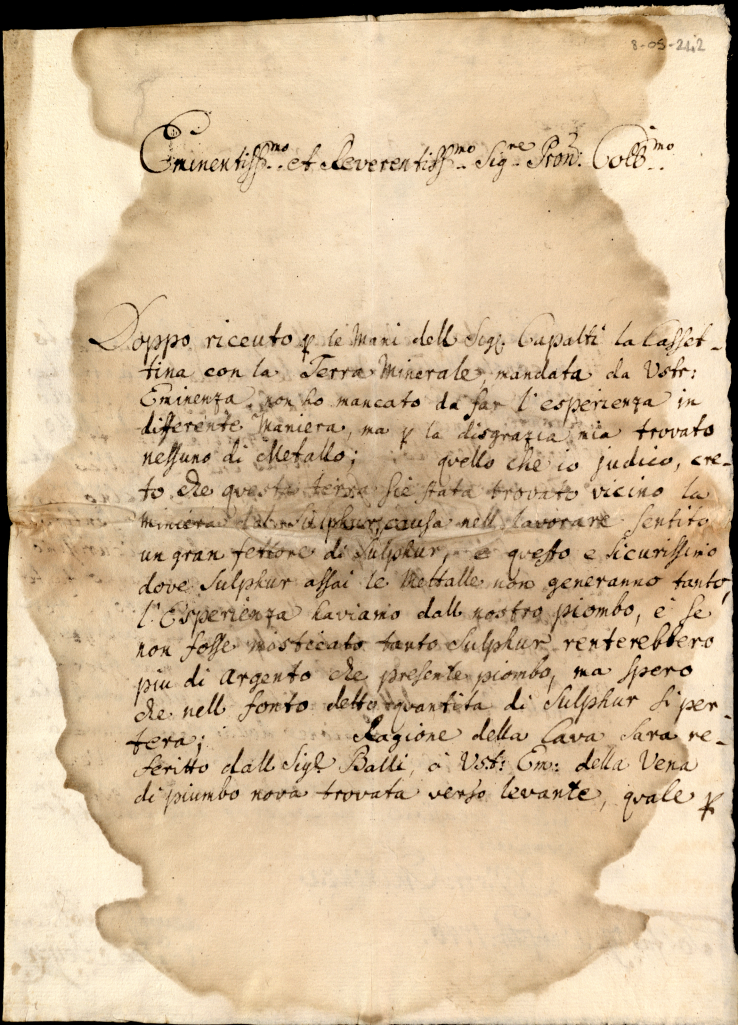 8-05-242
Eminentiss.mo et Reverentiss.mo Sig.re Pron. Coll.mo
Doppo riceuto p le mani dell Sig. Capalti la Casset-
tina con la Terra Minerale mandata da Vstr:
Eminenza, non ho mancato da far l'esperienza in
differente Maniera, ma p la disgrazia mia trovato
nessuno di Metallo; quello che io judico, cre-
to che questa terra sie stata trovato vicino la
miniera dal Sulphur, causa nell lavorare sentito
un gran fettore di Sulphur, e questo e sicurissimo
dove Sulphur assai le Mettalle non generanno tanto,
l'Esperienza haviamo dall nostro piombo, e se
non fosse misticato tanto Sulphur renterebbero
piu di Argento che presente piombo, ma spero
che nell fonto detta quantita di Sulphur si per-
tera; Ragione della Cava sara re-
feritto dall Sig. Balli, à Vst: Em: della Vena
di piumbo nova trovata verso levante, quale p